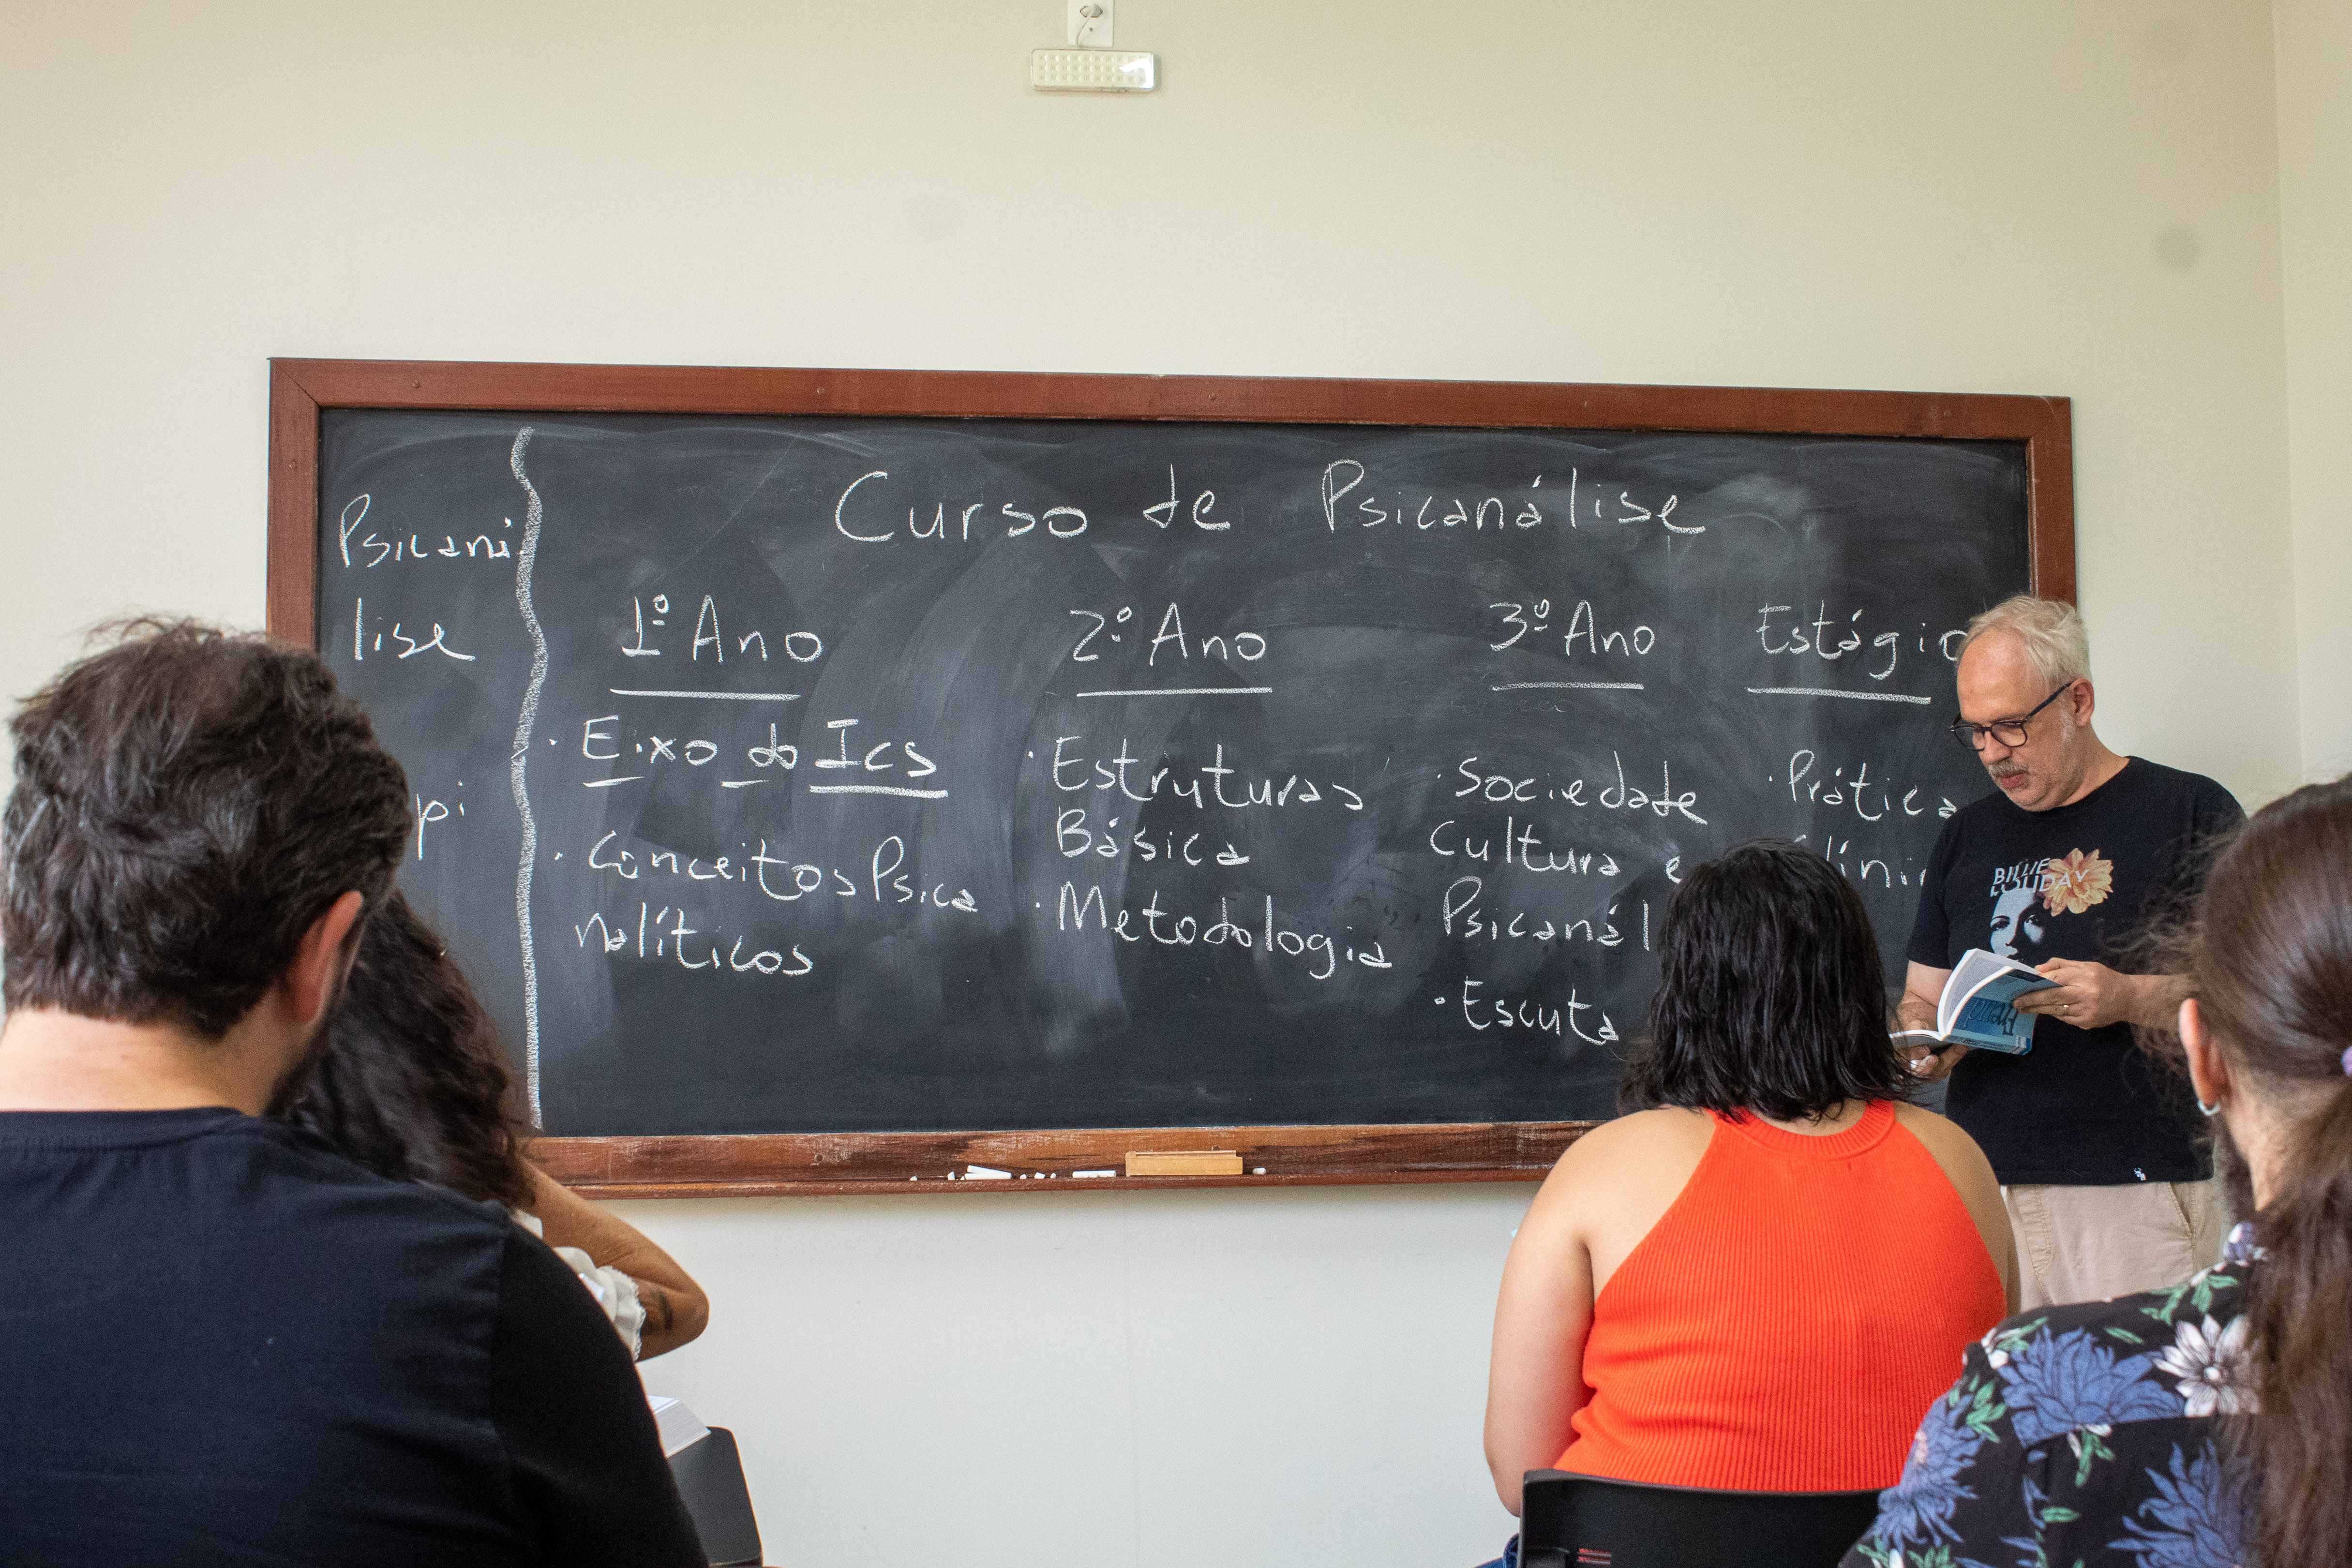 Curso de Psicanálise
Psicani
lise
pi
1º Ano
· Eixo do Ics
· Conceitos Psica
nalíticos
2º Ano
· Estruturas
Básica
· Metodologia
3º Ano
· Sociedade
Cultura e
Psicanál
· Escuta
Estágio
· Prática
línic
BILLIE
HOLIDAY